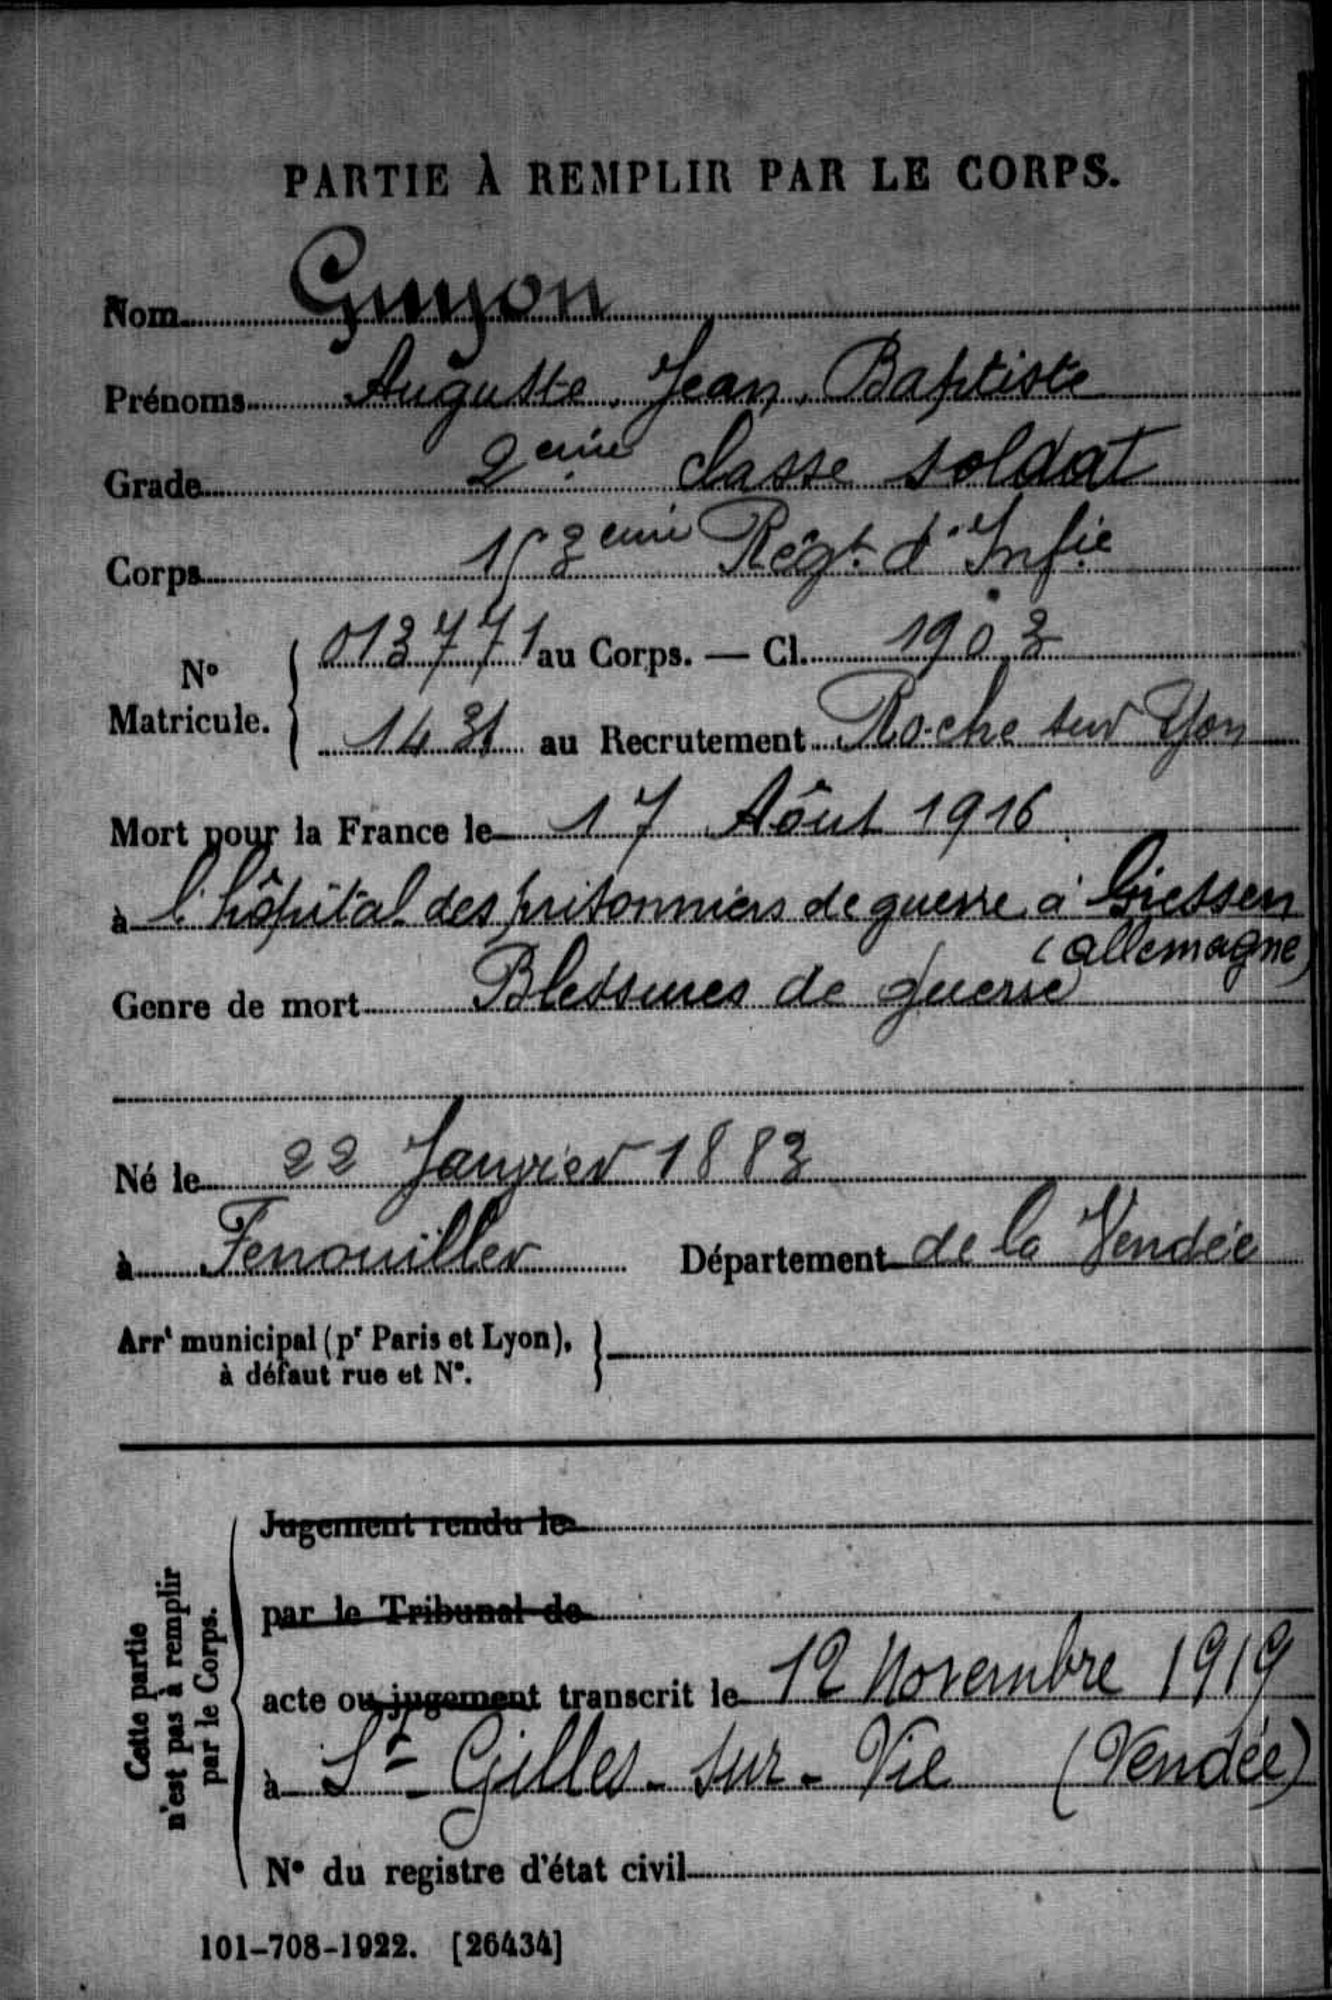 PARTIE À REMPLIR PAR LE CORPS.
Nom Guyon
Prénoms Auguste, Jean, Baptiste
Grade 2eme classe soldat
Corps 153eme Régt d'Infie
N° Matricule. { 013771 au Corps. — Cl. 1903
1431 au Recrutement Roche sur Yon
Mort pour la France le 17 Aôut 1916
à l'hôpital des prisonniers de guerre à Giessen
(allemagne)
Genre de mort Blessures de guerre
Né le 22 Janvier 1883
à Fenouiller Département de la Vendée
Arrt municipal (pr Paris et Lyon), }
à défaut rue et N°.
Cette partie
n'est pas à remplir
par le Corps.
Jugement rendu le
par le Tribunal de
acte ou jugement transcrit le 12 Novembre 1919
à St-Gilles-sur-Vie (Vendée)
N° du registre d'état civil
101-708-1922. [26434]